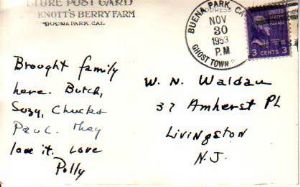 TURE POST CARD
KNOTT'S BERRY FARM
BUENA PARK, CAL.
BUENA PARK, CA
NOV
30
1953
P.M
GHOST TOWN
3 CENTS 3
Brought family
here. Butch,
Suzy, Chucks
Paul. They
love it. Love
Polly
W. N. Waldau
37 Amherst PL
Livingston
N.J.